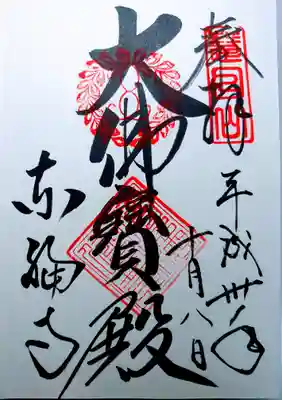 奉拝
平成卅年
十月八日
大佛寶殿
東福寺